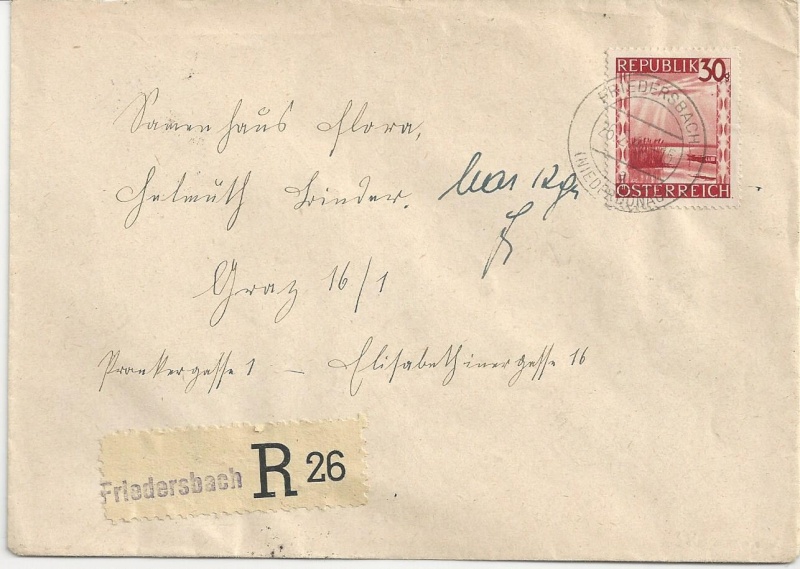 REPUBLIK 30g
ÖSTERREICH
FRIEDERSBACH
(NIEDERDONAU)
Samenhaus Flora,
Helmuth Binder.
bar 12 gr
Graz 16/1
Prankergasse 1 – Elisabethinergasse 16
Friedersbach R 26